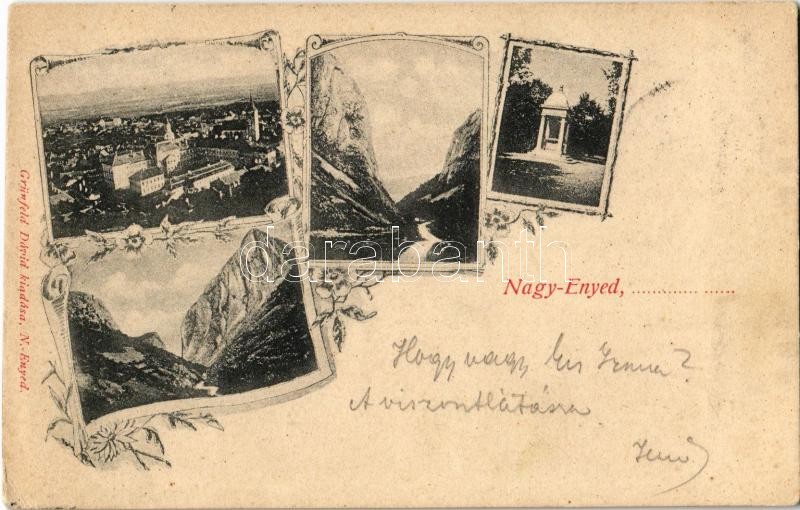 Grünfeld Dávid kiadása, N.-Enyed.
darabanth
Nagy-Enyed, ............. ......
Hogy vagy kis Irma?
A viszontlátásra
Jenő